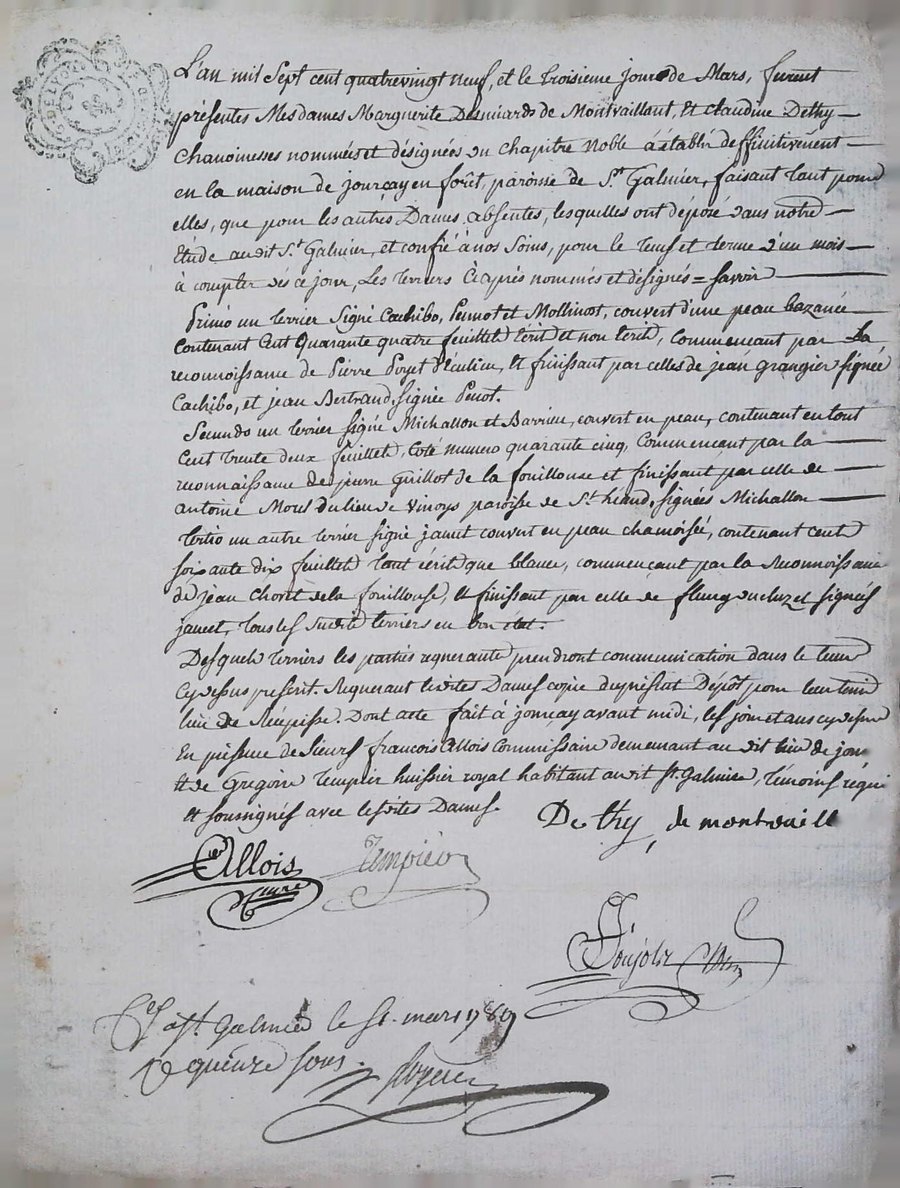 L'an mil Sept cent quatrevingt neuf, et le troisieme jour de Mars, furent
présentes Mesdames Marguerite Desmiards de Montvaillant, Et claudine Dethy
chanoinesses nommées et désignées au chapitre noble á établir deffinitivement
en la maison de jourcay en forêt, paroisse de St. Galmier, faisant tant pour
elles, que pour les autres Dames absentes, lesquelles ont déposé dans notre
Etude au dit St. Galmier, et confié à nos soins, pour le tems et terme d'un mois
à compter dès ce jour, Les terriers Cy après nommés et désignés = Savoir
Primo un terrier Signé Cachibo, et Mollinot, couvert d'une peau bazanée
contenant Cent Quarante quatre feuillets Ecrit et non Ecrit, commencant par La
reconnoissance de Pierre Poyet, Et finissant par celles de jean grangier signée
Cachibo, et jean Bertrand, signée Penot.
Secundo un terrier signé Michallon et Barrieu, couvert en peau, contenant en tout
Cent trente deux feuillets, coté numero quarante cinq, Commencant par la
reconnaissance de pierre Guillot de la fouillouse et finissant par celle de
antoine Mous du lieu de Vinoys paroisse de St. héand, signées Michallon
tertio un autre terrier signé janet couvert en peau chamoisée, contenant Cent
soixante dix feuillets tant écrit que blanc, commencant par la Reconnoissance
de jean Choret de la fouillouse, Et finissant par celle de fleury signés
tous les susdits terriers en bon état.
Desquels terriers les parties requerante prendront communication dans le tems
Cy dessus prescrit. Requerant lesdites Dames copie du présent Dépôt pour leur tenir
lieu de Récépissé. Dont acte fait à jourcay avant midi, les jour et an cy dessus
En présence de Sieurs françois Allois Commissaire demeurant au dit lieu de jour
Et de Gregoire Tempier huissier royal habitant au dit St. Galmier, témoins réqui
et soussignés avec lesdites Dames.
De thy de montvaill
Allois Tempier
Ponjolir
à St. Galmier le 1789
quinze sous.